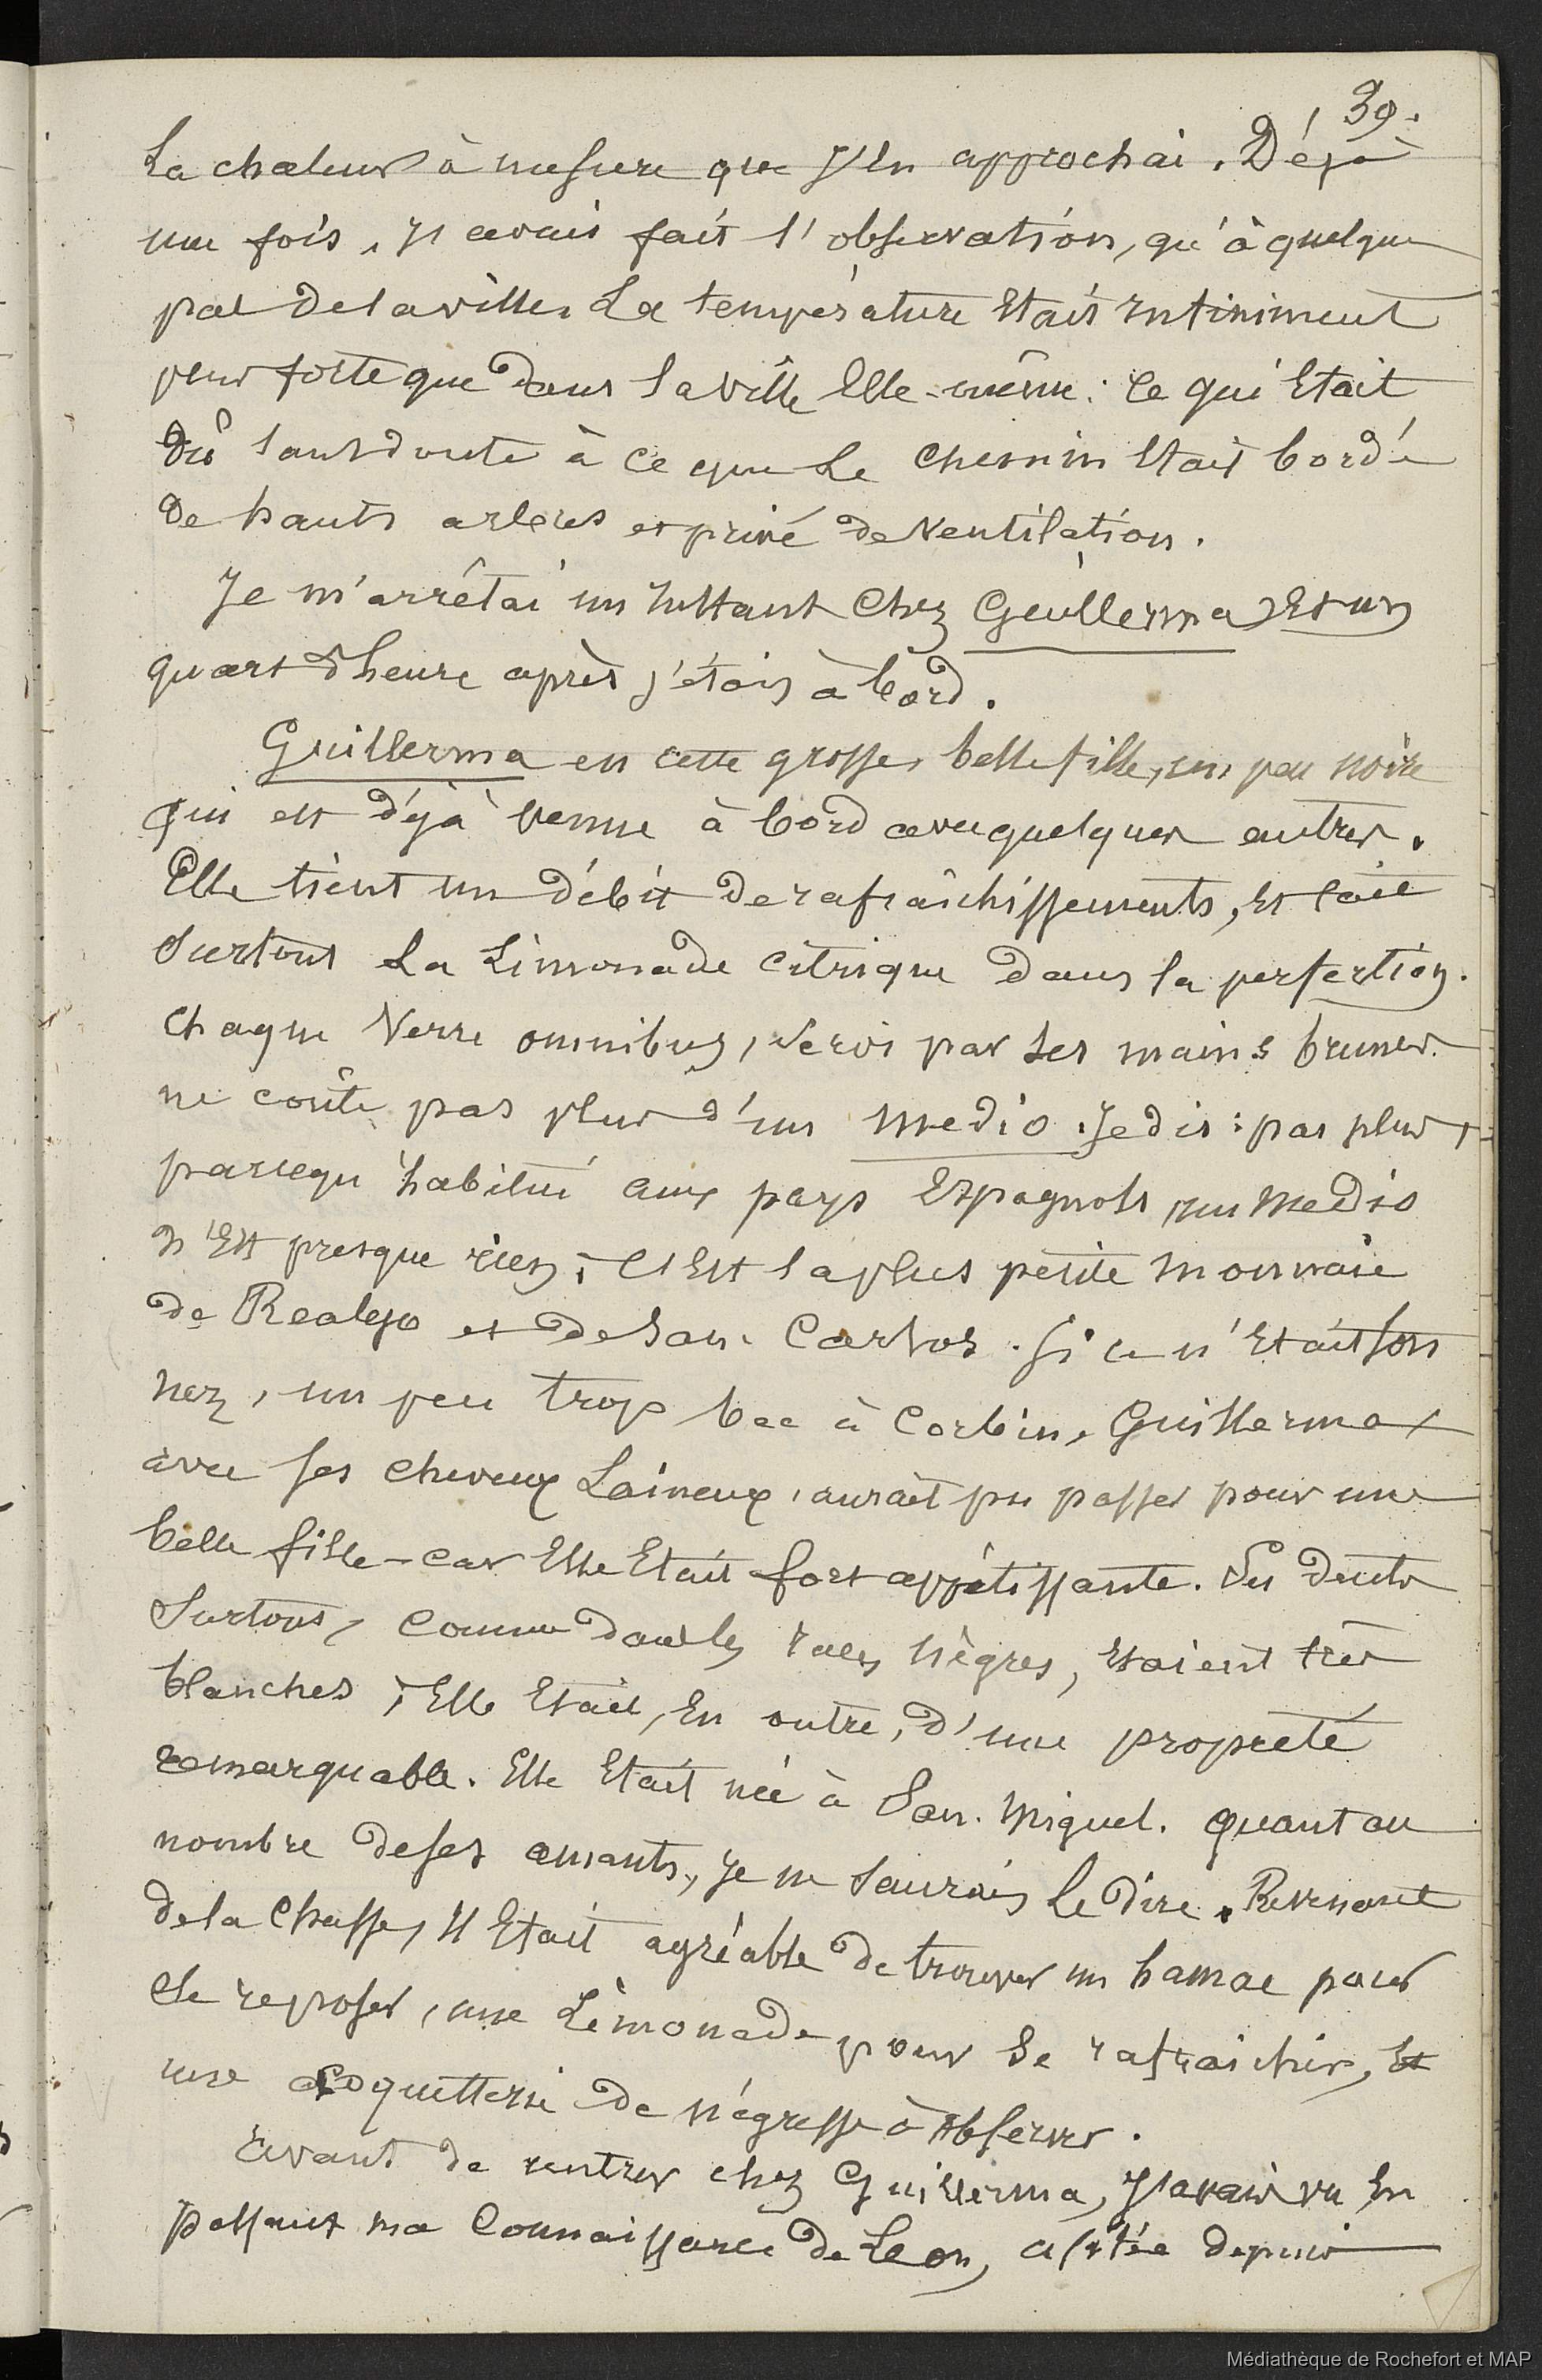 39.
La chaleur à mesure que j'en approchai. Déjà
une fois, j'avais fait l'observation, qu'à quelque
pas de la ville, la température était infiniment
plus forte que dans la ville elle-même: ce qui était
dû sans doute à ce que le chemin était bordé
de hauts arbres et privé de ventilation.
Je m'arrêtai un instant chez Guillerma, et un
quart d'heure après j'étais à bord.
Guillerma est cette grosse, belle fille, un peu noire
qui est déjà venue à bord avec quelques autres.
Elle tient un débit de rafraîchissements, et fait
surtout la limonade citrique dans la perfection.
Chaque verre omnibus, servi par ses mains brunes
ne coûte pas plus d'un medio. Je dis: pas plus,
parcequ'habitué aux pays Espagnols, un medio
n'est presque rien; c'est la plus petite monnaie
de Realejo et de San. Carlos. Si ce n'était son
nez, un peu trop bec à corbin, Guillerma,
avec ses cheveux laineux, aurait pu passer pour une
belle fille - car elle était fort appétissante. Ses dents
surtout, comme dans les races nègres, étaient très
blanches; elle était, en outre, d'une propreté
remarquable. Elle était née à San. Miguel. Quant au
nombre de ses amants, je ne saurais le dire. Revenant
de la chasse, il était agréable de trouver un hamac pour
se reposer, une limonade pour se rafraichir, et
une coquetterie de négresse à observer.
Avant de rentrer chez Guillerma, j'avais vu en
passant ma connaissance de Leon, alitée depuis
Médiathèque de Rochefort et MAP